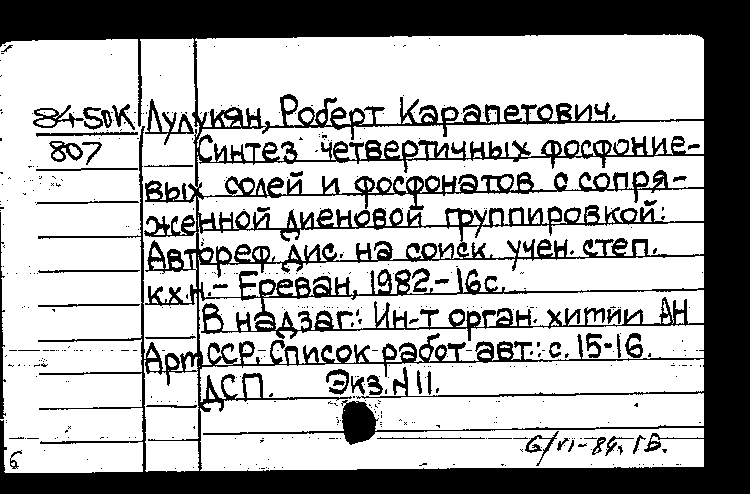 84-5DK Лулукян, Роберт Карапетович.
807 Синтез четвертичных фосфоние-
вых солей и фосфонатов с сопря-
женной диеновой группировкой:
Автореф. дис. на соиск. учен. степ.
к.х.н.- Ереван, 1982.-16с.
В надзаг.: Ин-т орган. химии АН
АрмССР. Список работ авт.: с. 15-16.
ДСП. Экз. N 11.
6/VI-84. 1
6